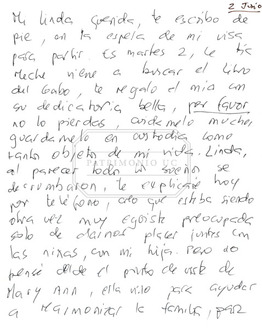 2 Junio
Mi linda querida, te escribo de
pie, en la espera de mi visa
para partir. Es martes 2, la tía
Meche viene a buscar el libro
del Gabo, te regalo el mía con
su dedicatoria bella, por favor
no lo pierdas, cuidamelo mucho,
guardamelo en custodia como
tanto objeto de mi vida. Linda,
al parecer todo mi sueño se
derrumbaron, te explicaré hoy
por teléfono, creo que estaba siendo
otra vez muy egoista preocupada
solo de darnos placer juntas con
las niñas, con mi hija. Pero no
pensé desde el punto de vista de
Mary Ann, ella vino para ayudar
a armonizar la familia, para
PATRIMONIO UC